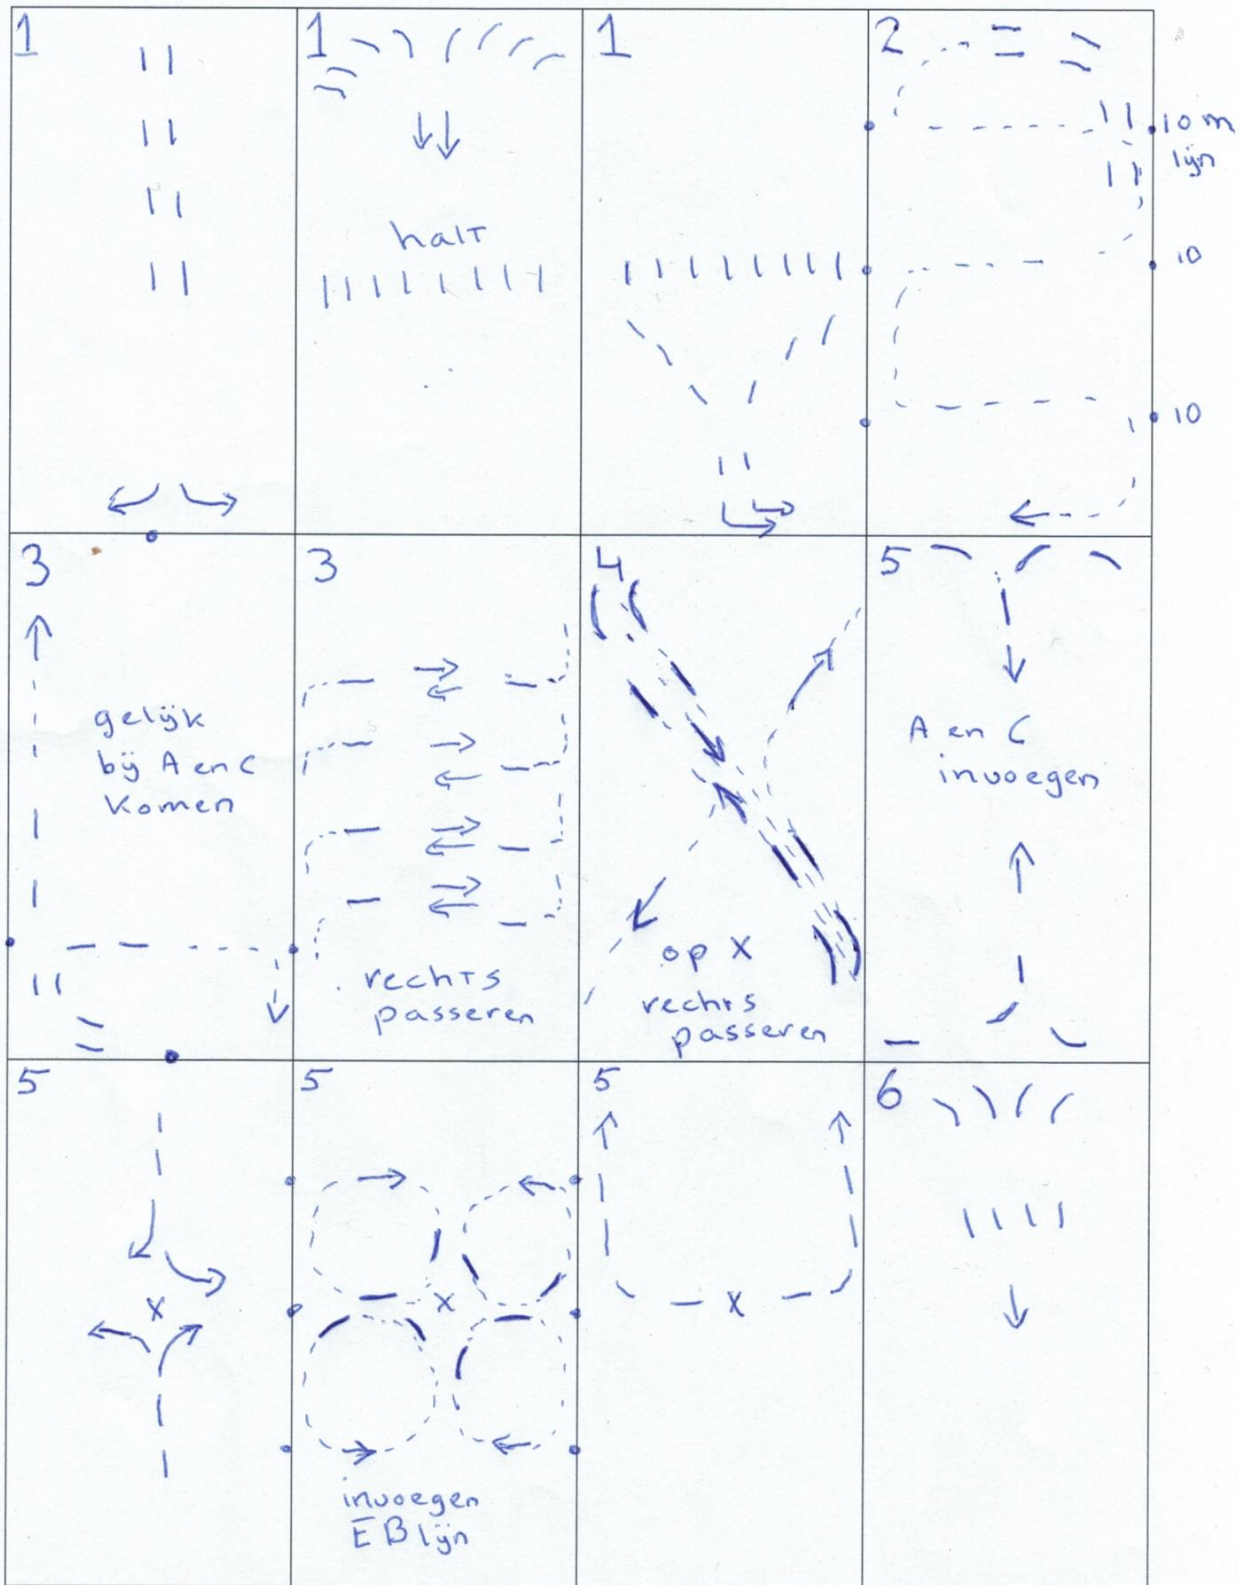 1
1
halt
1
2
10 m
lijn
10
10
3
gelijk
bij A en C
komen
3
rechts
passeren
4
op X
rechts
passeren
5
A en C
invoegen
5
X
5
X
invoegen
EB lijn
5
X
6